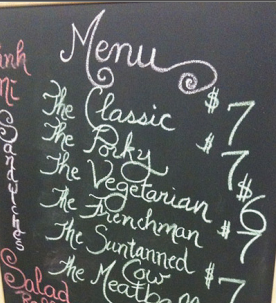 Menu
The Classic $7
The Porky $7
The Vegetarian $6
The Frenchman $7
The Suntanned
Cow $7
The
Sandwiches
Salad